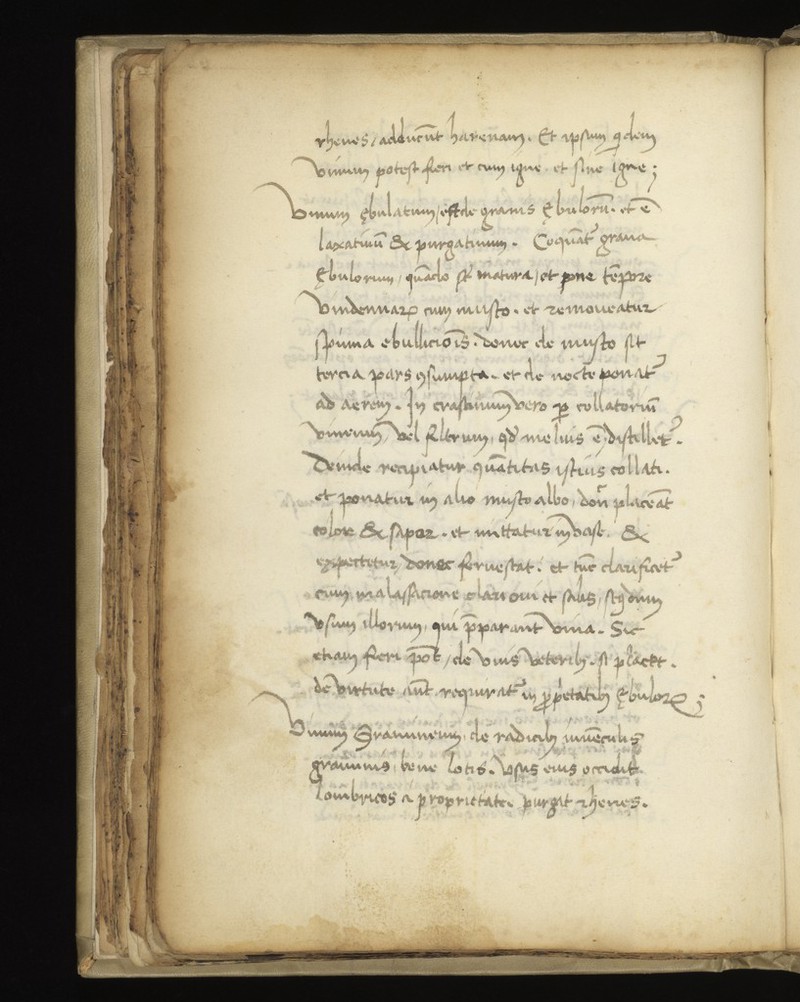 rhenes, adducũt harenam. Et ipsum qͥdem
vinum potest fieri et cum igne et sine igne;
Vinum ębulatum, est de granis Ębulorũ. et ẽ
laxatiuũ & purgatiuum. Coquãt᷑ grana
Ębulorum, quãdo sũt matura, et pone tẽpore
vindemiaꝝ cum musto. et remoueatur
spuma ebullicioĩs. donec de musto sit
tercia pars ꝯsumpta. et de nocte ponat᷑
ad aerem. In crastinum vero ꝑ collatoriũ
vineum vel filtrum, qđ melius ẽ, distillet᷑.
Deinde recipiatur quãtitas istius collati.
et ponatur in alio musto albo, donͨ placeãt
color & sapor. et mittatur in vase. &
expectetur donec feruescat. et tũc clarificet᷑
cum malaxacione clari oui et salis, scđum
vsum illorum, qui p̃parant vina. Sic
etiam fieri põt, de vinis veteribꝫ. si placet.
de virtute aũt requirat᷑ in ꝓp̃etatibꝫ Ębuloꝝ;
Vinum Gramineum, de radicibꝫ iuuẽculis
graminis bene lotis. Vsus eius occidit
lombricos a proprietate. purgat rhenes.